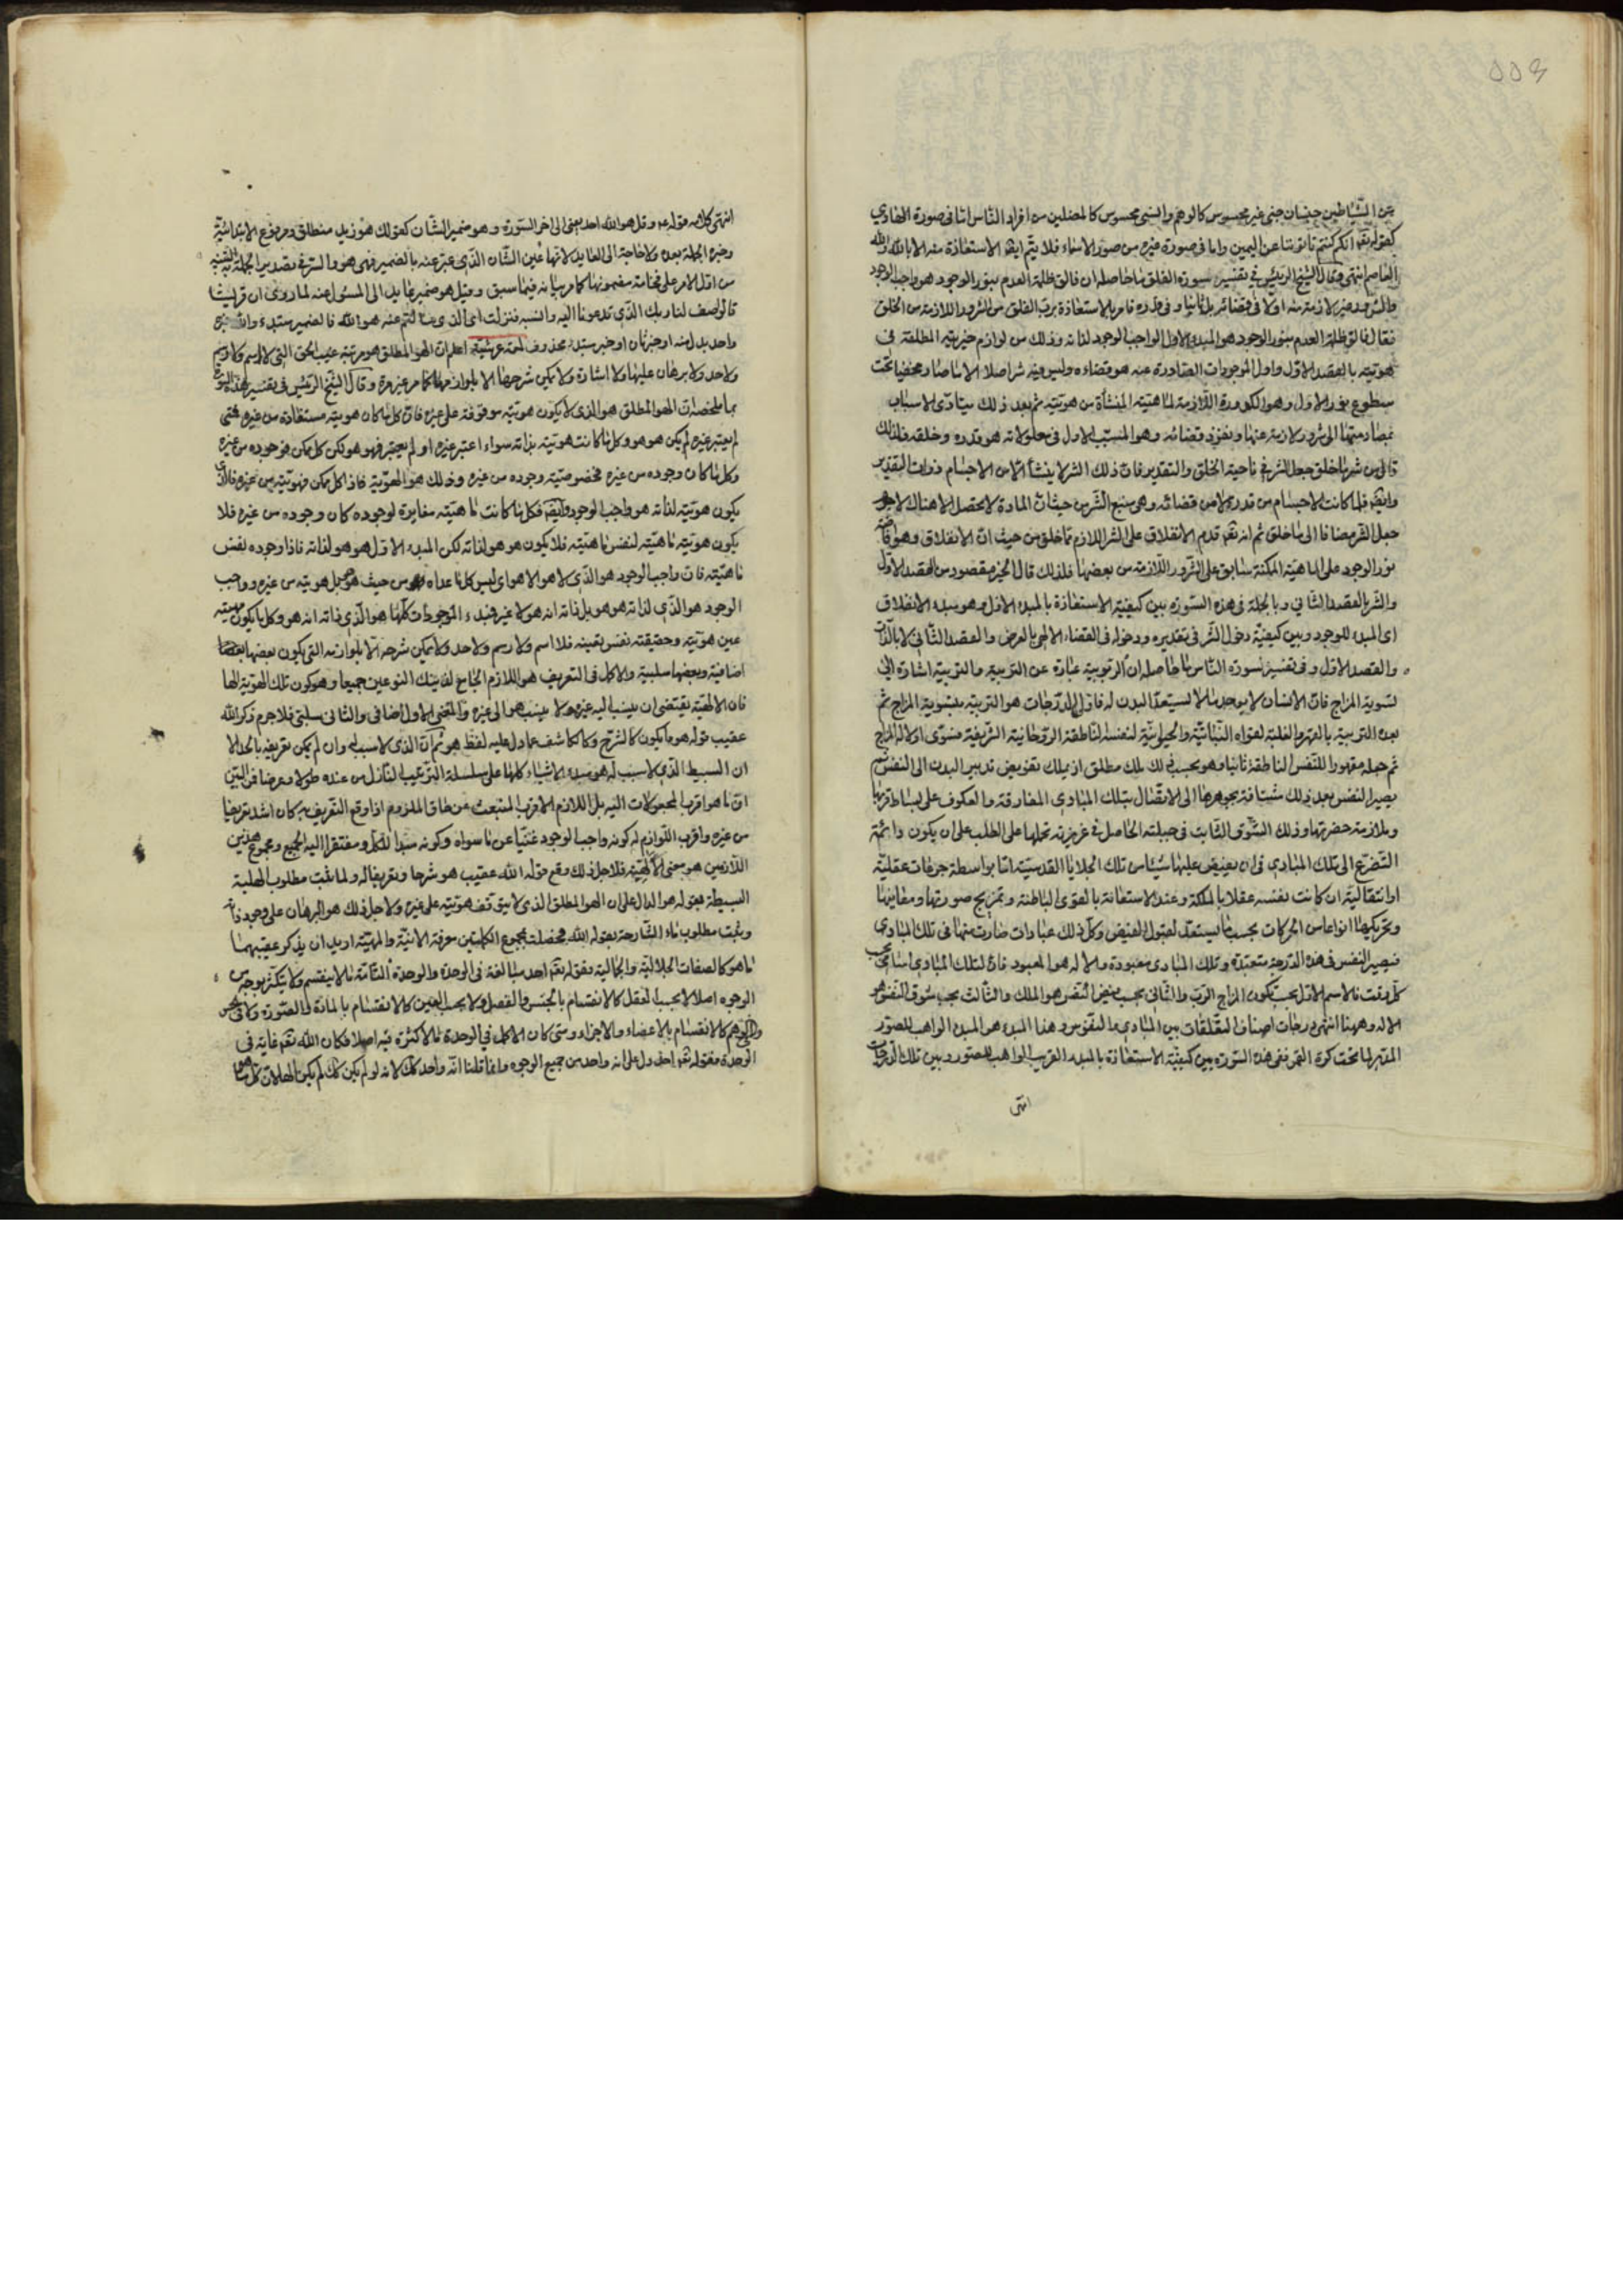 من الشياطين جنسان جنى غير محسوس كالوهم وانسى محسوس كالمضلين من افراد الناس اما فى صورة الهادي
كقوله تعالى انكم كنتم تأتوننا عن اليمين واما فى صورة غيره من صور الاسماء فلا يتم ايضا الاستعاذة منه الا بالله والله
العاصم انتهى وقال الشيخ الرئيس في تفسير سورة الفلق ما حاصله ان فالق ظلمة العدم بنور الوجود هو واجب الوجود
والشرور غير لازمة منه اولا في قضائه بل ثانيا وفى قدره فامر بالاستعاذة برب الفلق من الشرور اللازمة من الخلق
فقال فالق ظلمة العدم بنور الوجود هو المبدء الاول الواجب الوجود لذاته وذلك من لوازم خيريته المطلقة فى
هويته بالقصد الاول واول الموجودات الصادرة عنه هو قضاءه وليس فيه شر اصلا الا ما صار مخفيا تحت
سطوع نور الاول وهو الكدورة اللازمة لماهيته المنشأة من هويته ثم بعد ذلك يتأدى الاسباب
بمصادمتها الى شرور لازمة عنها ونفوذ قضائه وهو المسبب الاول فى معلولاته هو قدره وخلقه فلذلك
قال من شر ما خلق جعل الشر في ناحية الخلق والتقدير فان ذلك الشر لا ينشأ الا من الاجسام ذوات التقدير
وايضا فلما كانت الاجسام من قدره لا من قضائه وهى منبع الشر من حيث ان المادة لا تحصل الا هناك لا جرم
جعل الشر مضافا الى ما خلق ثم انه تعالى قدم الانفلاق على الشر اللازم مما خلق من حيث ان الانفلاق وهو افاضة
نور الوجود على الماهية الممكنة سابق على الشرور اللازمة من بعضها فلذلك قال الخير مقصود من القصد الاول
والشر بالقصد الثاني وبالجملة فى هذه السورة بين كيفية الاستعاذة بالمبدء الاول وهو مبدء الانفلاق
اى المبدء للوجود وبين كيفية دخول الشر فى تقديره ودخوله فى القضاء الالهى بالعرض والقصد الثاني لا بالذات
والقصد الاول وفى تفسير سورة الناس ما حاصله ان الربوبية عبارة عن التربية والتربية اشارة الى
تسوية المزاج فان الانسان لا يوجد ما لم يستعد البدن له فاول الدرجات هو التربية بتسوية المزاج ثم
بعد التربية بالقهر والغلبة لقواه النباتية والحيوانية لنفسه الناطقة الروحانية الشريفة فسوى اولا له المزاج
ثم جعله مقهورا للنفس الناطقة ثانيا وهو بحسب ذلك ملك مطلق اذ يملك تفويض تدبير البدن الى النفس ثم
يصير النفس بعد ذلك مشتاقة بجوهرها الى الاتصال بتلك المبادي المفارقة والعكوف على بساط قربها
وملازمة حضرتها وذلك الشوق الثابت فى جبلته الحاصل في غريزته تحملها على الطلب على ان يكون دائمة
التضرع الى تلك المبادي فى ان يفيض عليها شيئا من تلك الجلايا القدسية اما بواسطة حركات عقلية
او انتقالية ان كانت نفسه عقلا بالملكة وعند الاستعانة بالقوى الباطنة وتمزيج صورتها ومعانيها
وتحريكها انواعا من الحركات بحسب ما يستعد لقبول الفيض وكل ذلك عبادات صارت منها فى تلك المبادي
فيصير النفس فى هذه الدرجة متعبدة وتلك المبادى معبودة والاله هو المعبود فاذا لتلك المبادي اسامى بحسب
كل وقت فالاسم الاول بحسب تكون المزاج الرب والثانى بحسب فيض النفس هو الملك والثالث بحسب شوق النفس هو
الاله وههنا انتهى درجات اصناف التعلقات بين المبادي والنفوس وهذا المبدء هو المبدء الواهب للصور
المدبر لما تحت كرة القمر ففى هذه السورة بين كيفية الاستعاذة بالمبدء القريب الواهب للصور وبين تلك الدرجات
انتهى
انتهى كلامه قوله عه وقل هو الله احد يعنى الى اخر السورة وهو ضمير الشان كقولك هو زيد منطلق ومرفوع الابتدائية
وخبره الجملة بعده ولا حاجة الى العايد لانها عين الشان الذي عبر عنه بالضمير فهى هو والسر فى تصدير الجملة به التنبيه
من اول الامر على فخامة مضمونها كما مر بيانه فيما سبق وقيل هو ضمير عايد الى المسئول عنه لما روى ان قريشا
قالوا صف لنا ربك الذي تدعونا اليه وانسبه فنزلت اى الذي سألتم عنه هو الله فالضمير مبتدء والله خبره
واحد بدل منه او خبر ثان او خبر مبتدء محذوف لمعة عرشية اعلم ان الهو المطلق هو مرتبة غيب الحق التى لا اسم ولا رسم
ولا حد ولا برهان عليها ولا اشارة ولا يمكن شرحها الا بلوازمها كما مر غير مرة وقال الشيخ الرئيس فى تفسير هذه السورة
بما ملخصه ان الهو المطلق هو الذى لا يكون هويته موقوفة على غيره فان كل ما كان هويته مستفادة من غيره فمتى
لم يعتبر غيره لم يكن هو هو وكل ما كانت هويته بذاته سواء اعتبر غيره او لم يعتبر فهو هو لكن كل ممكن فوجوده من غيره
وكل ما كان وجوده من غيره فخصوصيته وجوده من غيره وذلك هو الهوية فاذا كل ممكن فهويته من غيره فالذى
يكون هويته لذاته هو واجب الوجود وايضا فكل ما كانت ماهيته مغايرة لوجوده كان وجوده من غيره فلا
يكون هويته ماهيته لنفس ماهيته فلا يكون هو هو لذاته لكن المبدء الاول هو هو لذاته فاذا وجوده نفس
ماهيته فان واجب الوجود هو الذي لا هو الا هو اى ليس كل ما عداه من حيث هو هو بل هويته من غيره وواجب
الوجود هو الذي لذاته هو هو بل ذاته انه هو لا غير فمبدء الموجودات كلها هو الذي ذاته انه هو وكل ما يكون هويته
عين هويته وحقيقته نفس تعينه فلا اسم ولا رسم ولا حد ولا يمكن شرحه الا بلوازمه التى يكون بعضها
اضافية وبعضها سلبية والاكمل فى التعريف هو اللازم الجامع لذينك النوعين جميعا وهو كون تلك الهوية الها
فان الالهية يقتضى ان ينسب اليه غيره ولا ينسب هو الى غيره والمعنى الاول اضافى والثانى سلبى فلا جرم ذكر الله
عقيب قوله هو ما يكون كالشرح وكالكاشف عما دل عليه لفظ هو ثم ان الذى لا سبب له وان لم يمكن تعريفه بالحد الا
ان البسيط الذي لا سبب له هو مبدء الاشياء كلها على سلسلة الترتيب النازل من عنده طولا وعرضا فمن البين
ان ما هو اقرب المجعولات اليه بل اللازم الاقرب المنبعث عن حاق الملزوم اذا وقع التعريف به كان اشد تعريفا
من غيره واقرب اللوازم له كونه واجب الوجود غنيا عن ما سواه وكونه مبدأ للكل ومفتقرا اليه الجميع ومجموع هذين
اللازمين هو معنى الالهية فلاجل ذلك وقع قوله الله عقيب هو شرحا وتعريفا له ولما ثبت مطلوب الهلية
البسيطة بقوله هو الدال على ان الهو المطلق الذى لا يتوقف هويته على غيره ولاجل ذلك هو البرهان على وجود ذاته
وثبت مطلوب ماء الشارحة بقوله الله فحصلت بمجموع الكلمتين معرفة الانية والمهية اريد ان يذكر عقيبهما
ما هو كالصفات الجلالية والجمالية فقوله تعالى احد مبالغة فى الوحدة والوحدة التامة ما لا ينقسم ولا يتكثر بوجه من
الوجوه اصلا لا بحسب العقل كالانقسام بالجنس والفصل ولا بحسب العين كالانقسام بالمادة والصورة ولا فى الحس
والوهم كالانقسام بالاعضاء والاجزاء ومتى كان الاكمل فى الوحدة ما لا كثرة فيه اصلا فكان الله تعالى غاية فى
الوحدة فقوله تعالى احد دل على انه واحد من جميع الوجوه وانما قلنا انه واحد كك لانه لو لم يكن كك لم يكن الها لان كل ما هو